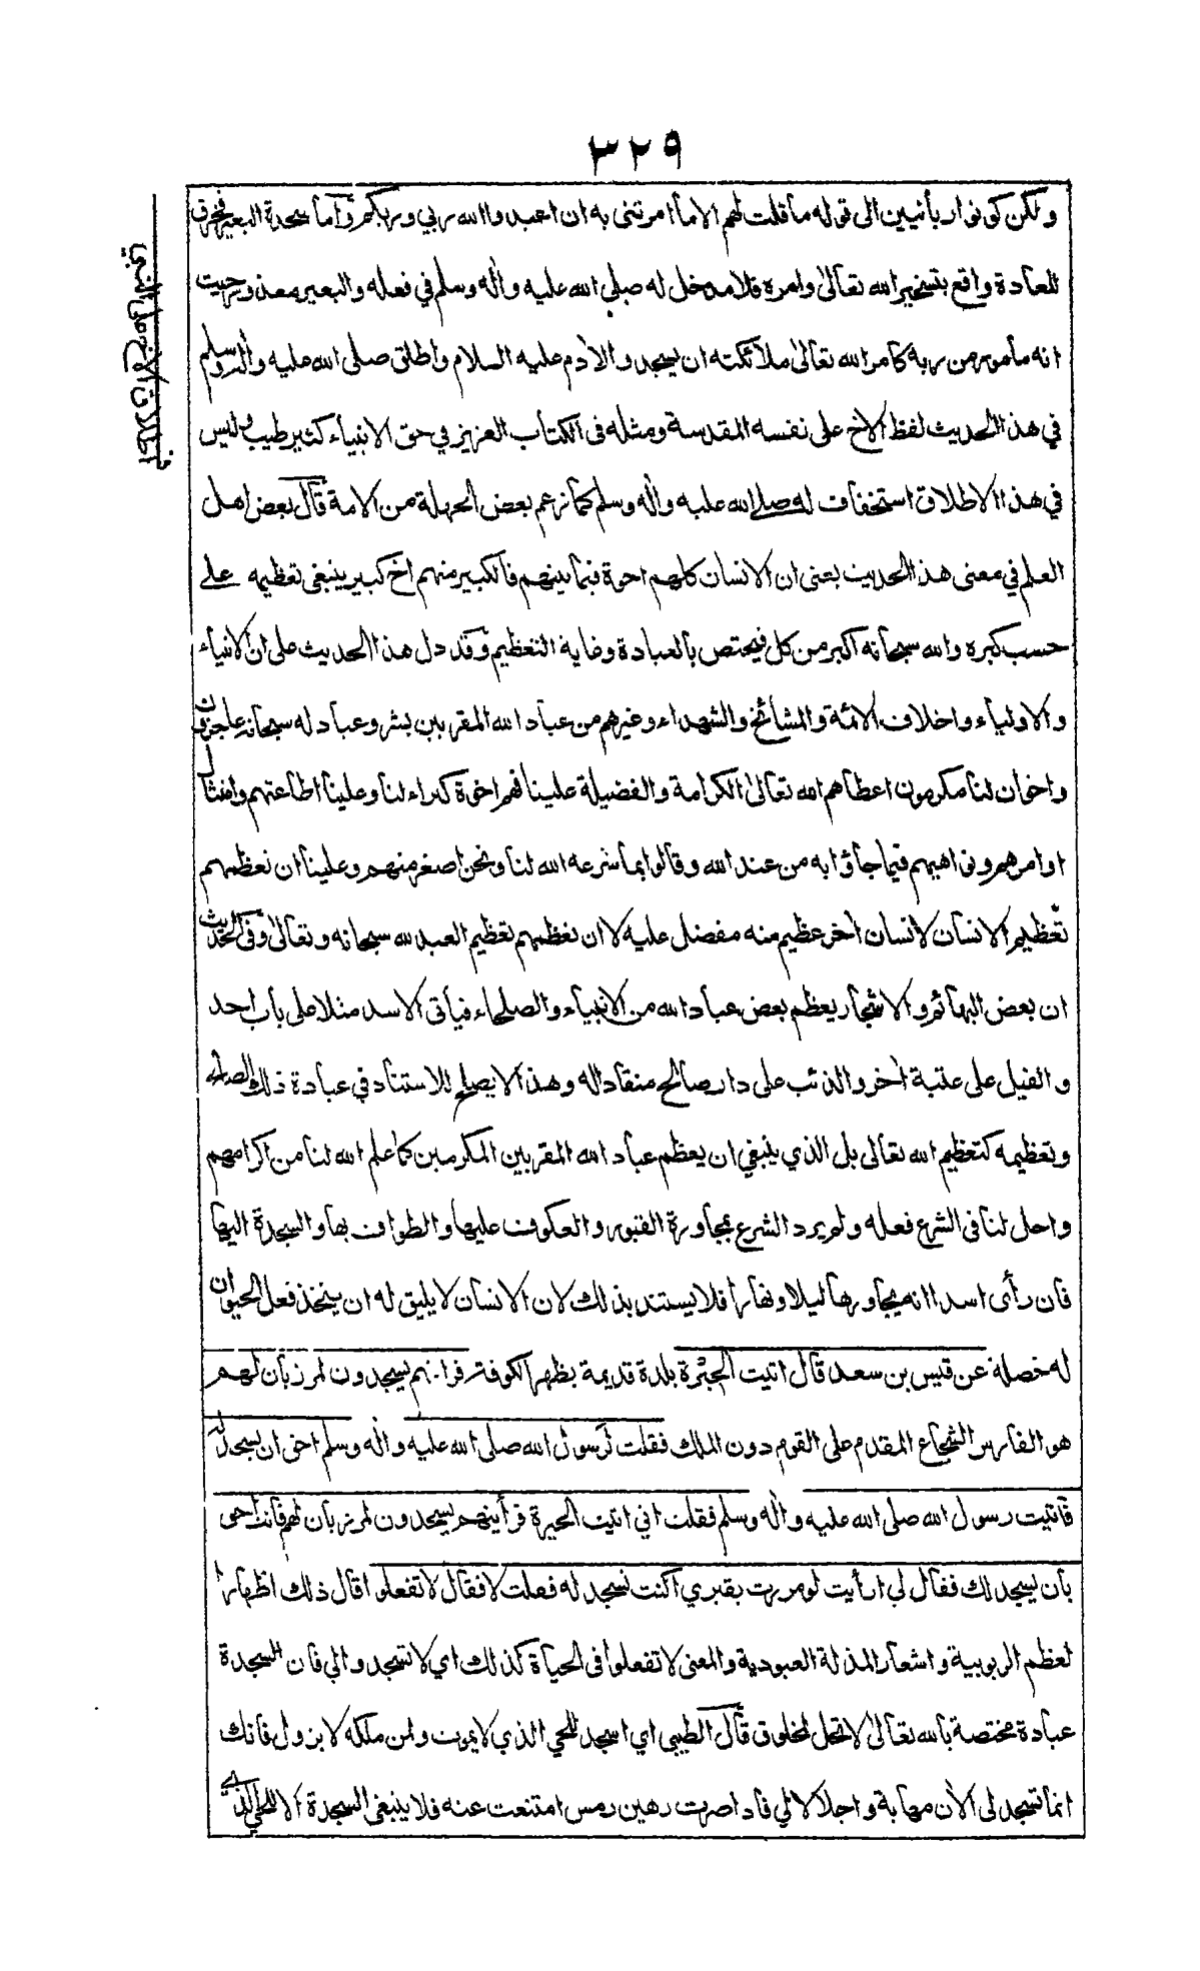 ٣٢٩
ولكن كونوا ربانيين الى قوله ما قلت لهم الا ما امرتني به ان اعبدوا الله ربي وربكم واما سجدة البعير فخرق
للعادة واقع بتسخير الله تعالى وامره فلا مدخل له صلى الله عليه واله وسلم في فعله والبعير معذور حيث
انه مأمور من ربه كامر الله تعالى ملائكته ان يسجدوا لادم عليه السلام واطلق صلى الله عليه واله وسلم
في هذا الحديث لفظ الاخ على نفسه المقدسة ومثله في الكتاب العزيز في حق الانبياء كثير طيب وليس
في هذا الاطلاق استخفاف له صلى الله عليه واله وسلم كما زعم بعض الجهلة من الامة قال بعض اهل
العلم في معنى هذا الحديث يعني ان الانسان كلهم اخوة فيما بينهم فالكبير منهم اخ كبير ينبغي تعظيمه على
حسب كبره والله سبحانه اكبر من كل فيختص بالعبادة وغاية التعظيم وقد دل هذا الحديث على ان الانبياء
والاولياء واخلاف الائمة والمشائخ والشهداء وغيرهم من عباد الله المقربين بشر وعباد له سبحانه عاجزون
واخوان لنا مكرمون اعطاهم الله تعالى الكرامة والفضيلة علينا فهم اخوة كبراء لنا وعلينا اطاعتهم وامتثال
اوامرهم ونواهيهم فيما جاؤا به من عند الله وقالوا بما شرعه الله لنا ونحن اصغر منهم وعلينا ان نعظمهم
تعظيم الانسان لانسان اخر عظيم منه مفضل عليه لا ان نعظمهم تعظيم العبد لله سبحانه وتعالى وفي الحديث
ان بعض البهائم والاشجار يعظم بعض عباد الله من الانبياء والصلحاء فيأتي الاسد مثلا على باب احد
والفيل على عتبة اخر والذئب على دار صالح منقادا له وهذا لا يصلح للاستناد في عبادة ذلك الصالح
وتعظيمه كتعظيم الله تعالى بل الذي ينبغي ان يعظم عباد الله المقربين المكرمين كما علم الله لنا من اكرامهم
واحل لنا في الشرع فعله ولم يرد الشرع بمجاورة القبور والعكوف عليها والطواف بها والسجدة اليها
فان رأى اسدا انه يجاورها ليلا ونهارا فلا يستند بذلك لان الانسان لا يليق له ان يتخذ فعل الحيوان
له خصلة عن قيس بن سعد قال اتيت الحيرة بلدة قديمة بظهر الكوفة فرأيتهم يسجدون لمرزبان لهم
هو الفارس الشجاع المقدم على القوم دون الملك فقلت لرسول الله صلى الله عليه واله وسلم احق ان يسجد له
فاتيت رسول الله صلى الله عليه واله وسلم فقلت اني اتيت الحيرة فرأيتهم يسجدون لمرزبان لهم فانت احق
بان يسجد لك فقال لي ارأيت لو مررت بقبري اكنت تسجد له فقلت لا فقال لا تفعلوا قال ذلك اظهارا
لعظم الربوبية واشعارا لمذلة العبودية والمعنى لا تفعلوا في الحياة كذلك اي لا تسجدوا لي فان السجدة
عبادة مختصة بالله تعالى لا تحل لمخلوق قال الطيبي اي اسجد للحي الذي لا يموت ولمن ملكه لا يزول فانك
انما تسجد لي الان مهابة واجلالا لي فاذا صرت رهين رمس امتنعت عنه فلا ينبغي السجدة الا للحي الذي
اطلاق الاخ على النبي